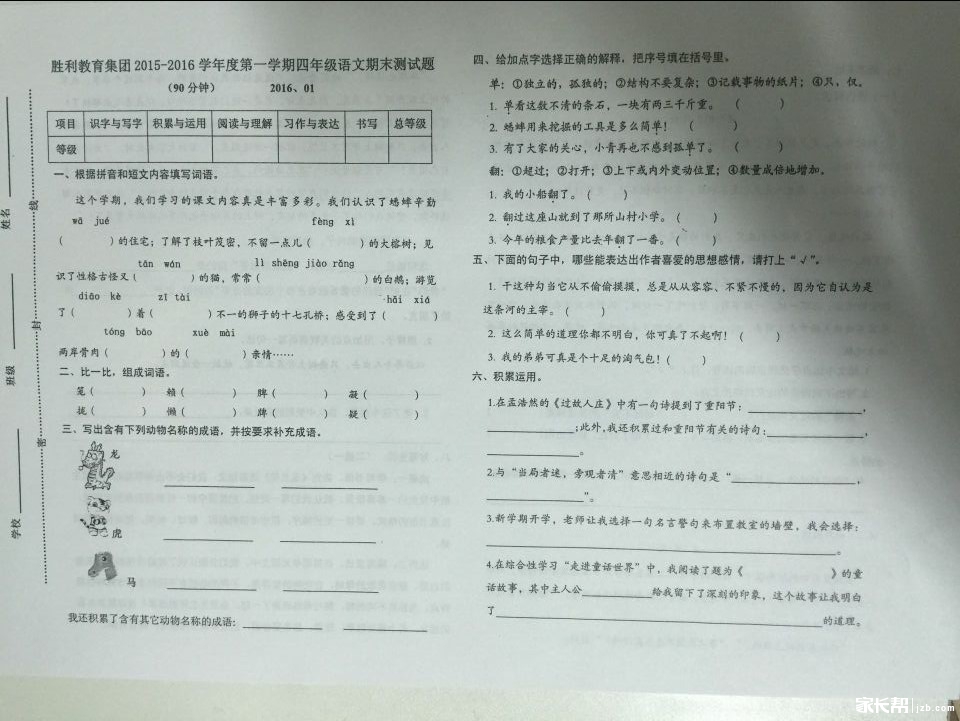 胜利教育集团 2015-2016 学年度第一学期四年级语文期末测试题
（90 分钟） 2016、01
项目 识字与写字 积累与运用 阅读与理解 习作与表达 书写 总等级
等级
一、根据拼音和短文内容填写词语。
这个学期，我们学习的课文内容真是丰富多彩。我们认识了蟋蟀辛勤
wā jué fèng xì
（ ）的住宅；了解了枝叶茂密，不留一点儿（ ）的大榕树；见
tān wán lì shēng jiào rǎng
识了性格古怪又（ ）的猫，常常（ ）的白鹅；游览
diāo kè zī tài hǎi xiá
了（ ）着（ ）不一的狮子的十七孔桥；感受到了（ ）
tóng bāo xuè mài
两岸骨肉（ ）的（ ）亲情……
二、比一比，组成词语。
笼（ ） 赖（ ） 脾（ ） 凝（ ）
拢（ ） 懒（ ） 牌（ ） 疑（ ）
三、写出含有下列动物名称的成语，并按要求补充成语。
龙
虎
马
我还积累了含有其它动物名称的成语：
四、给加点字选择正确的解释，把序号填在括号里。
单：①独立的，孤独的；②结构不要复杂；③记载事物的纸片；④只，仅。
1. 单看这数不清的条石，一块有两三千斤重。 （ ）
2. 蟋蟀用来挖掘的工具是多么简单！ （ ）
3. 有了大家的关心，小青再也不感到孤单了。 （ ）
翻：①超过；②打开；③上下或内外变动位置；④数量成倍地增加。
1. 我的小船翻了。（ ）
2. 翻过这座山就到了那所山村小学。（ ）
3. 今年的粮食产量比去年翻了一番。（ ）
五、下面的句子中，哪些能表达出作者喜爱的思想感情，请打上“√”。
1. 干这种勾当它从不偷偷摸摸，总是从从容容、不紧不慢的，因为它自认为是
这条河的主宰。（ ）
2. 这么简单的道理你都不明白，你可真了不起啊！（ ）
3. 我的弟弟可真是个十足的淘气包！（ ）
六、积累运用。
1.在孟浩然的《过故人庄》中有一句诗提到了重阳节：，
；此外，我还积累过和重阳节有关的诗句：，
。
2.与“当局者迷，旁观者清”意思相近的诗句是“，
”。
3.新学期开学，老师让我选择一句名言警句来布置教室的墙壁，我会选择：
。
4.在综合性学习“走进童话世界”中，我阅读了题为《 》的童
话故事，其中主人公给我留下了深刻的印象，这个故事让我明白
了的道理。
姓名
班级
学校
线
封
密
家长帮 jzb.com